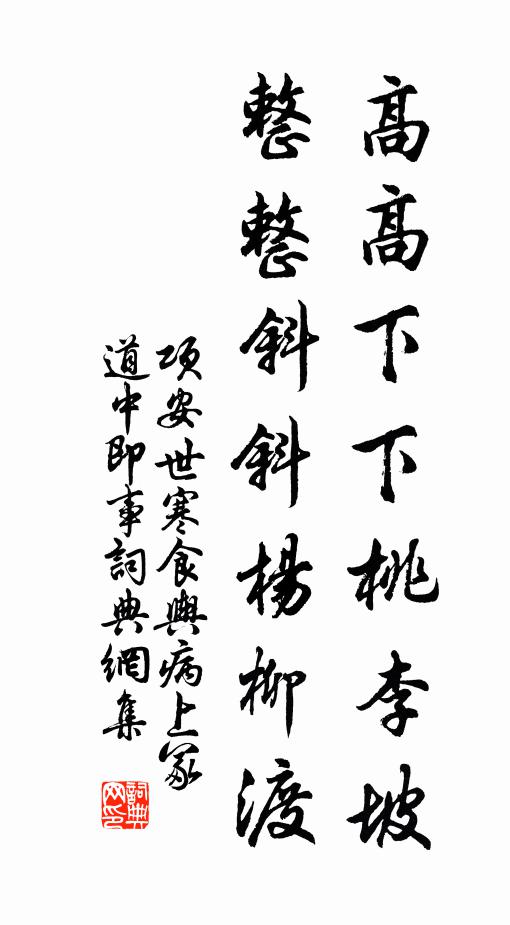 高高下下桃李坡
整整斜斜楊柳渡
項安世寒食輿病上冢
道中即事詞典網集
詞典网印